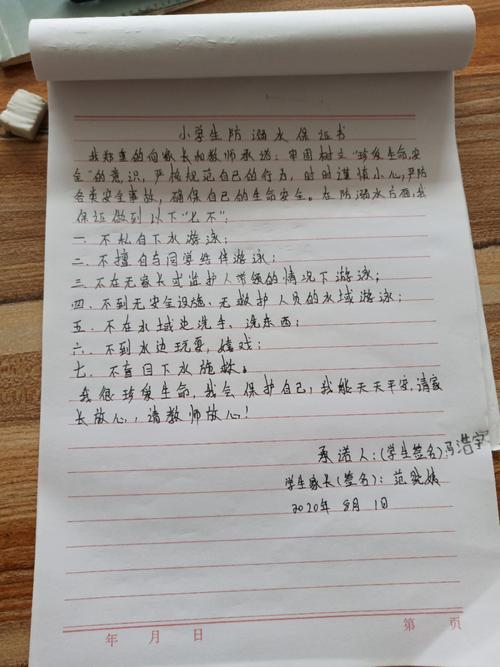 小学生防溺水保证书
我郑重的向家长和教师承诺：牢固树立“珍爱生命，安
全”的意识，严格规范自己的行为，时时谨慎小心，严防
各类安全事故，确保自己的生命安全。在防溺水方面，我
保证做到以下“七不”：
一. 不私自下水游泳；
二. 不擅自与同学结伴游泳；
三. 不在无家长或监护人带领的情况下游泳；
四. 不到无安全设施、无救护人员的水域游泳；
五. 不在水域边洗手、洗东西；
六. 不到水边玩耍，嬉戏；
七. 不盲目下水施救。
我很珍爱生命，我会保护自己，我能天天平安，请家
长放心，请教师放心！
承诺人：（学生签名）冯浩宇
学生家长（签名）：范
2020年 8月 1日
年 月 日 第 页